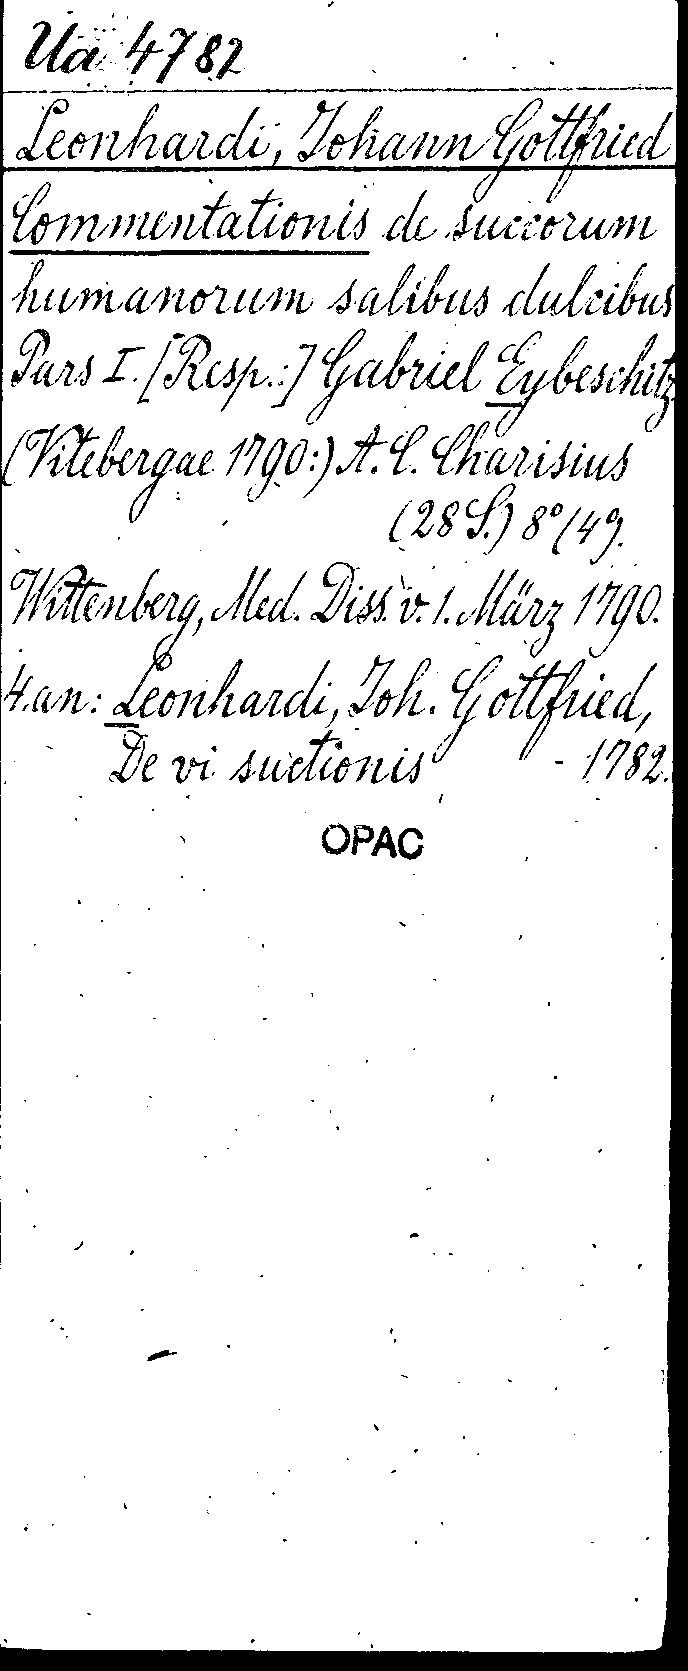 Ua 4782
Leonhardi, Johann Gottfried
Commentationis de succorum
humanorum salibus dulcibus
Pars I. [Resp.:] Gabriel Eybeschitz
(Vitebergae 1790:) A. C. Charisius
(28 S.) 8°(4).
Wittenberg, Med. Diss. v. 1. März 1790.
4. an: Leonhardi, Joh. Gottfried,
De vi suctionis - 1782.
OPAC